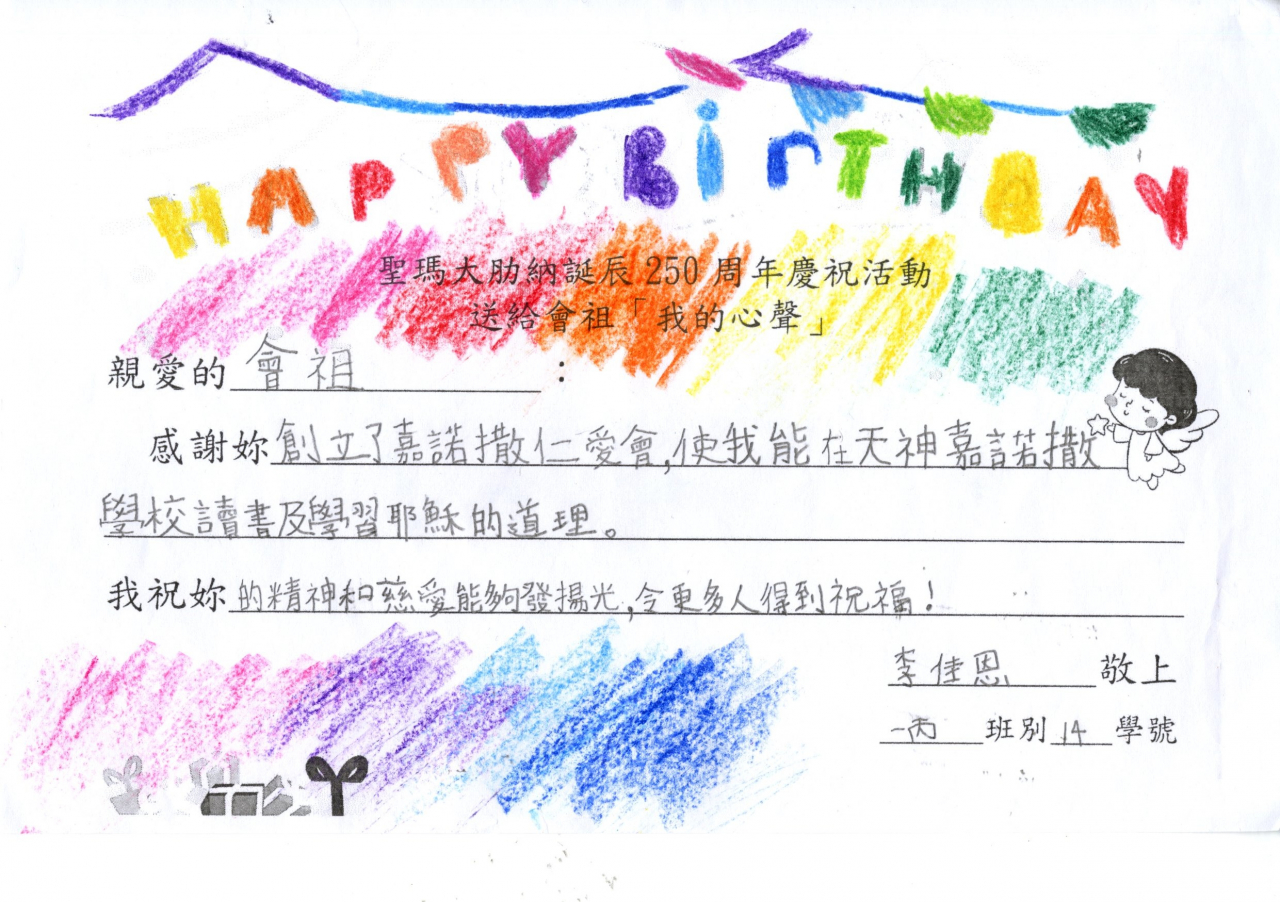 HAPPY BirTHDAY
聖瑪大肋納誕辰 250 周年慶祝活動
送給會祖「我的心聲」
親愛的會祖：
感謝妳創立了嘉諾撒仁愛會,使我能在天神嘉諾撒
學校讀書及學習耶穌的道理。
我祝妳的精神和慈愛能夠發揚光,令更多人得到祝福！
李佳恩敬上
一丙班別14學號